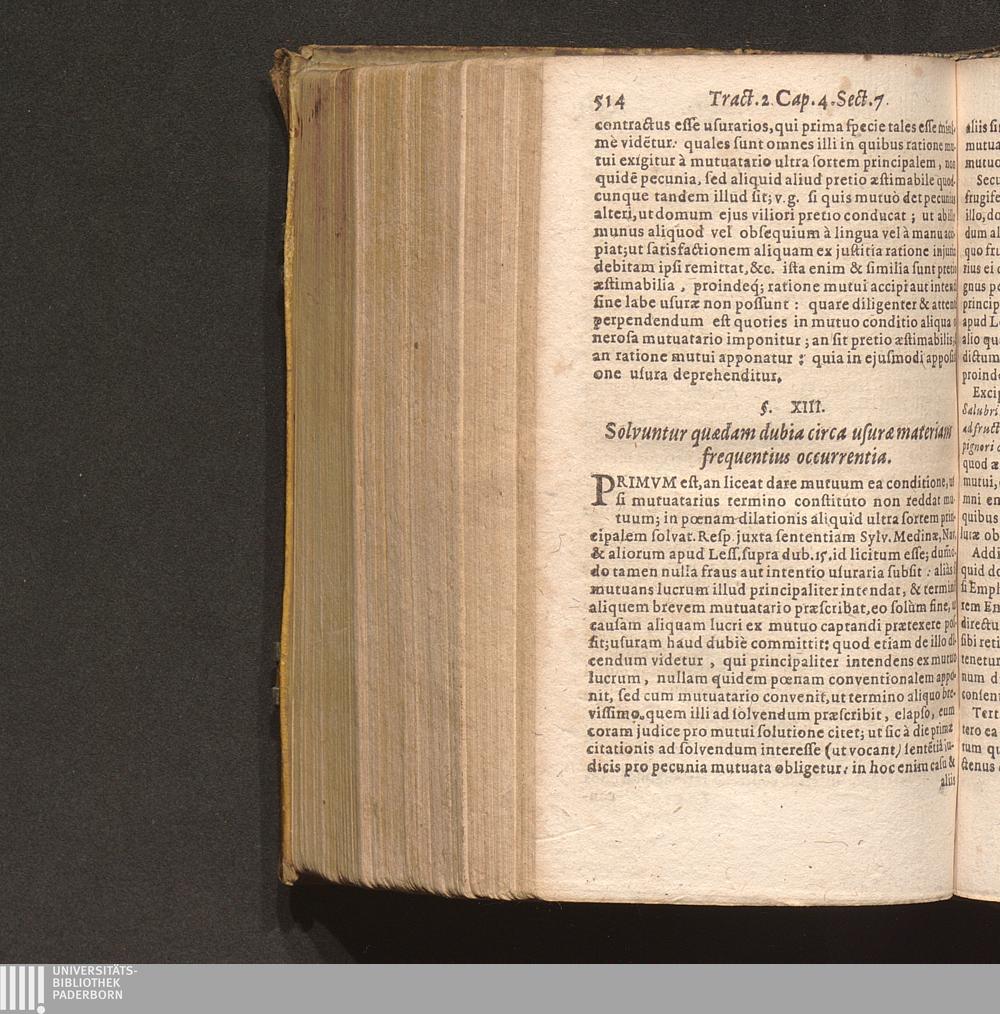 514 Tract. 2. Cap. 4. Sect. 7.
contractus esse usurarios, qui prima specie tales esse
mè vidētur: quales sunt omnes illi in quibus ratione mu-
tui exigitur à mutuatario ultra sortem principalem, non
quidē pecunia, sed aliquid aliud pretio æstimabile quod-
cunque tandem illud sit; v. g. si quis mutuò det pecunias
alteri, ut domum ejus viliori pretio conducat; ut ab illo
munus aliquod vel obsequium à lingua vel à manu acci-
piat; ut satisfactionem aliquam ex justitia ratione injuriæ
debitam ipsi remittat, &c. ista enim & similia sunt pretio
æstimabilia, proindeq; ratione mutui accipi aut intendi
sine labe usuræ non possunt: quare diligenter & attente
perpendendum est quoties in mutuo conditio aliqua o-
nerosa mutuatario imponitur; an sit pretio æstimabilis,
an ratione mutui apponatur: quia in ejusmodi appositi-
one usura deprehenditur.
§. XIII.
Solvuntur quædam dubia circa usuræ materiam
frequentius occurrentia.
PRIMVM est, an liceat dare mutuum ea conditione, ut
si mutuatarius termino constituto non reddat mu-
tuum; in pœnam dilationis aliquid ultra sortem prin-
cipalem solvat. Resp. juxta sententiam Sylv. Medinæ, Nav.
& aliorum apud Less. supra dub. 15. id licitum esse; dum̄o-
do tamen nulla fraus aut intentio usuraria subsit: aliàs si
mutuans lucrum illud principaliter intendat, & terminū
aliquem brevem mutuatario præscribat, eo solùm fine, ut
causam aliquam lucri ex mutuo captandi prætexere pos-
sit; usuram haud dubiè committit: quod etiam de illo di-
cendum videtur, qui principaliter intendens ex mutuo
lucrum, nullam quidem pœnam conventionalem appo-
nit, sed cum mutuatario convenit, ut termino aliquo bre-
vissimo, quem illi ad solvendum præscribit, elapso, eum
coram judice pro mutui solutione citet; ut sic à die primæ
citationis ad solvendum interesse (ut vocant) sentētiâ ju-
dicis pro pecunia mutuata obligetur: in hoc enim casu &
aliis
aliis
mutua
mutuo
Secu
frugife
illo, do
dum al
quo fru
rius ei
gnus p
princip
apud L
alio qu
dictum
proind
Excip
Salubri
ad fruct
pignori
quod æ
mutui,
mni en
quibus
suræ ob
Addi
quid de
si Emp
rem Em
directu
sibi reti
tenetur
num d
consen
Tert
tero ea
tum qu
ctenus
UNIVERSITÄTS-
BIBLIOTHEK
PADERBORN